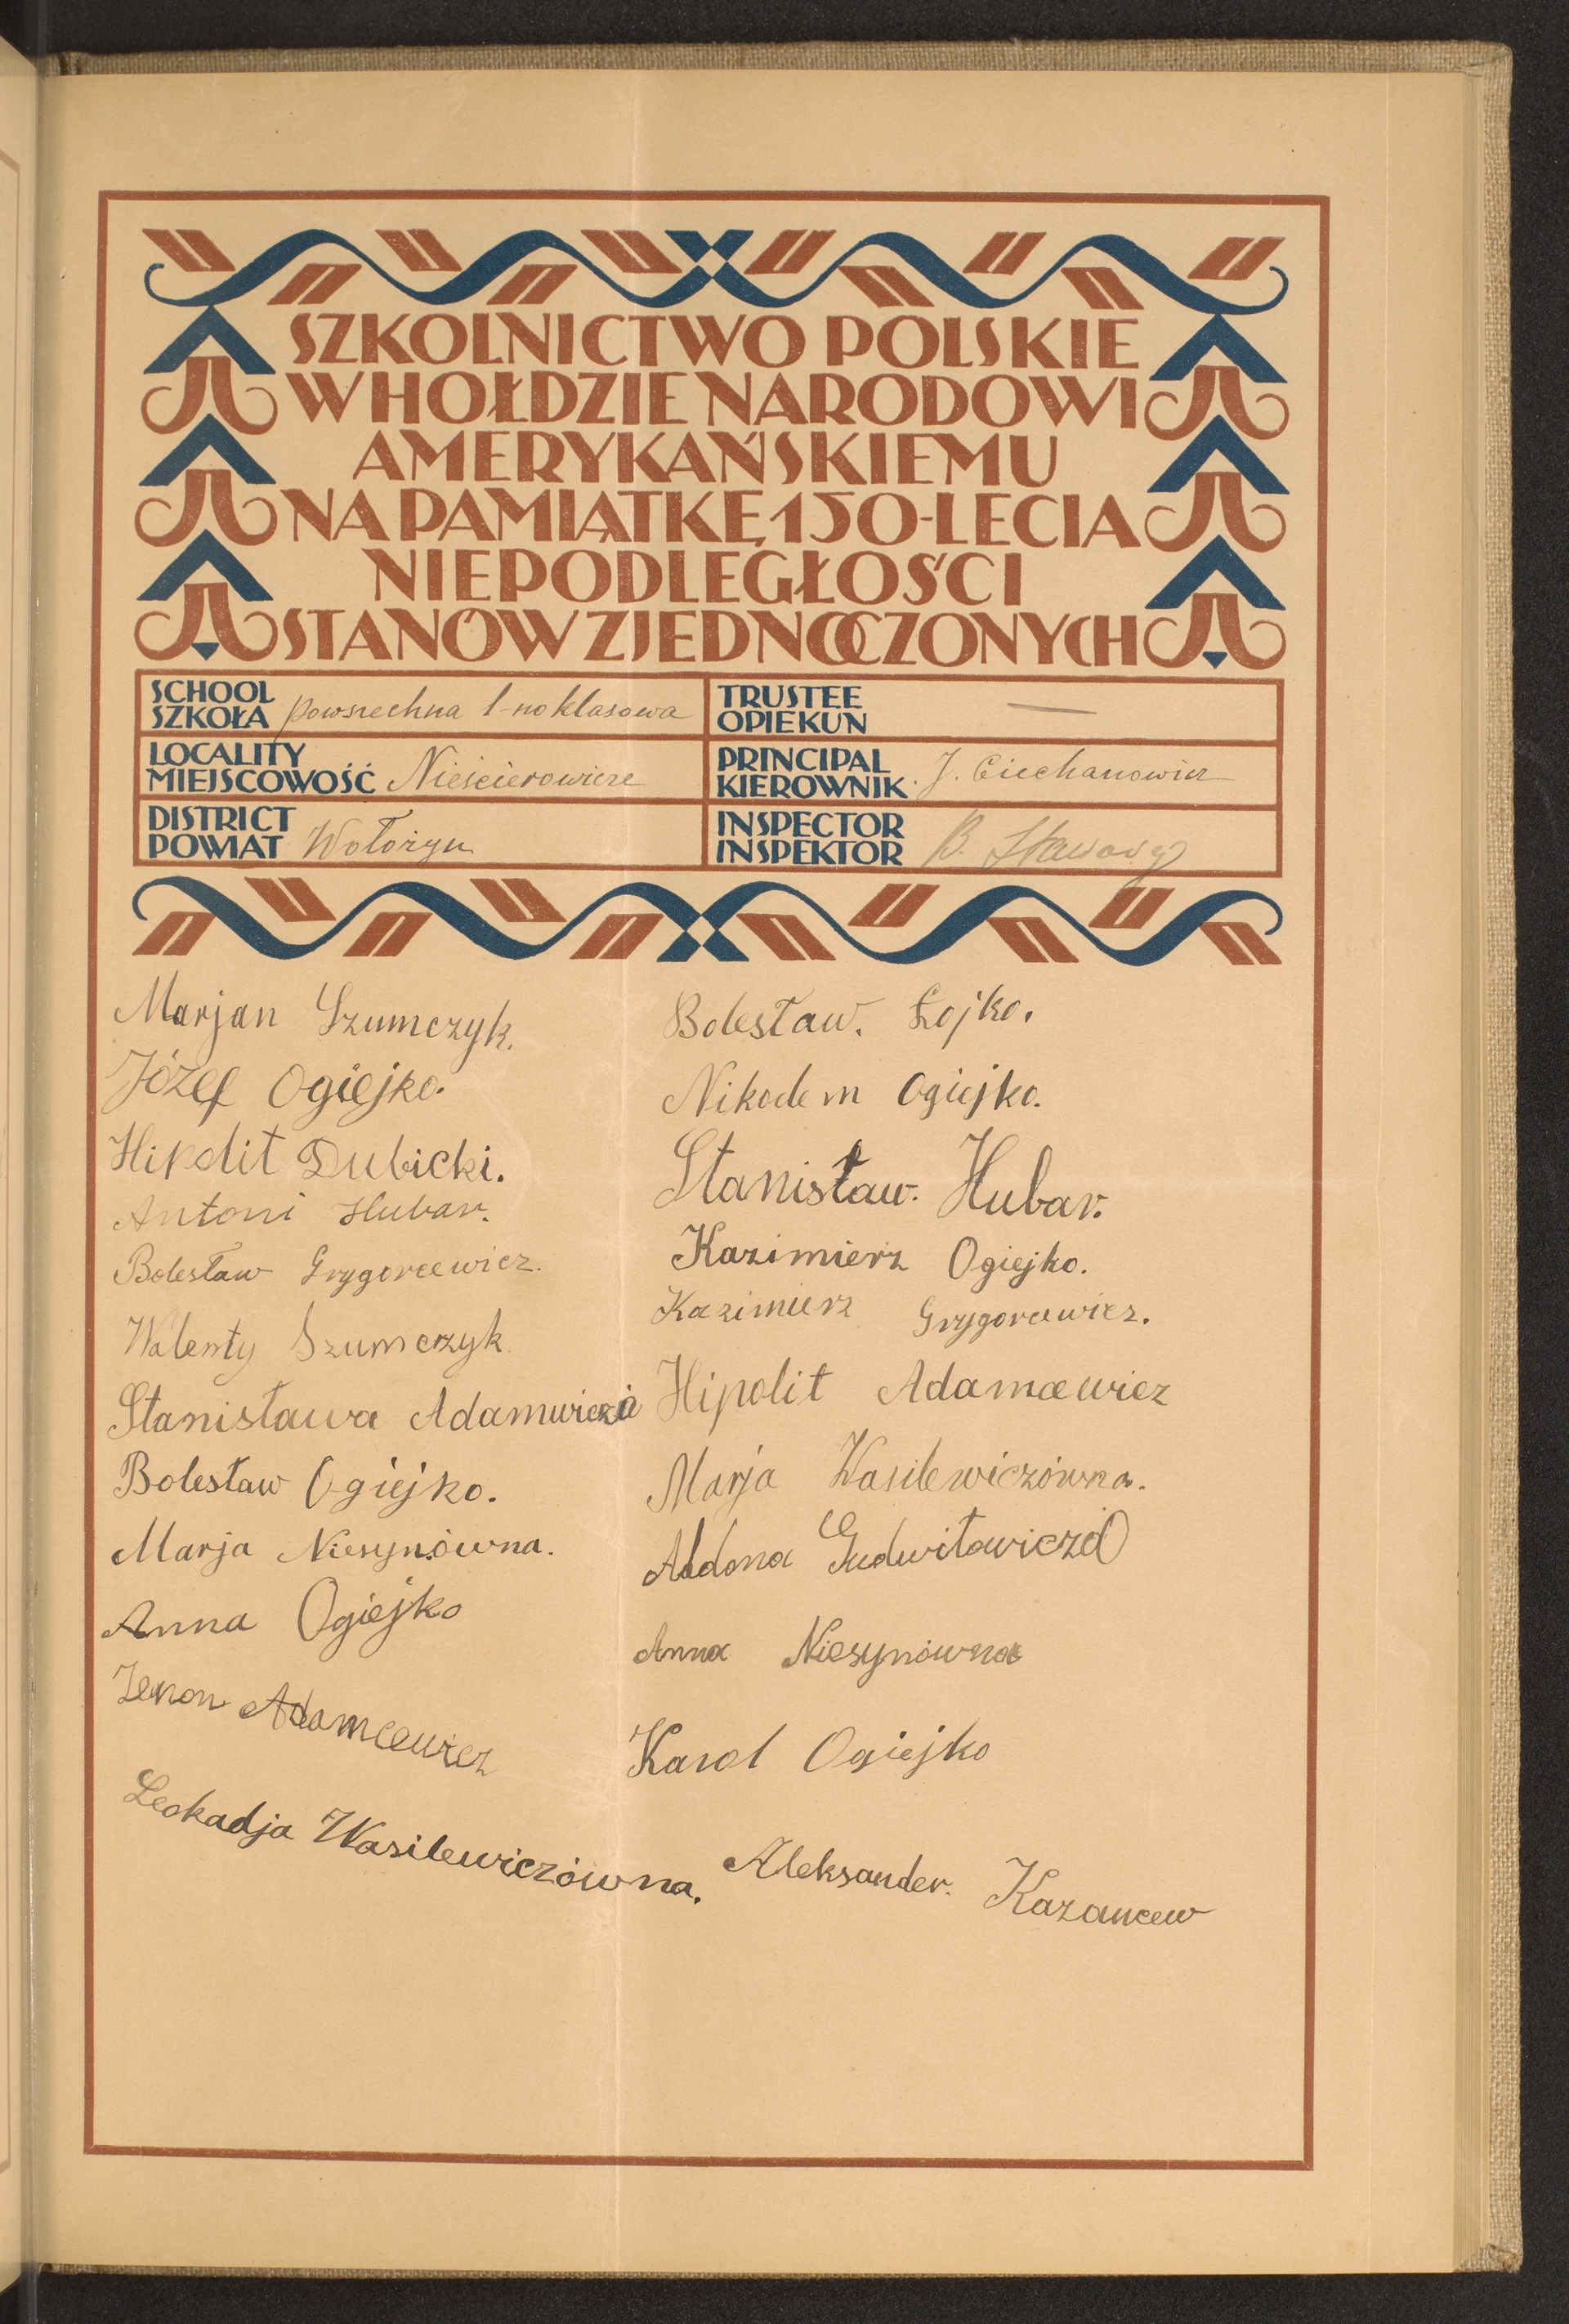 SZKOLNICTWO POLSKIE
W HOŁDZIE NARODOWI
AMERYKAŃSKIEMU
NA PAMIĄTKĘ 150-LECIA
NIEPODLEGŁOŚCI
STANÓW ZJEDNOCZONYCH
SCHOOL
SZKOŁA powszechna 1-no klasowa
TRUSTEE
OPIEKUN —
LOCALITY
MIEJSCOWOŚĆ Nieścierowicze
PRINCIPAL
KIEROWNIK J. Ciechanowicz
DISTRICT
POWIAT Wołożyn
INSPECTOR
INSPEKTOR B.
Marjan Szumczyk.
Józef Ogiejko.
Hipolit Dubicki.
Antoni Hubar.
Bolesław Grygorcewicz.
Walenty Szumczyk.
Stanisława Adamwicza
Bolesław Ogiejko.
Marja Niesynówna.
Anna Ogiejko
Zenon Adamcewicz
Leokadja Wasilewiczówna.
Bolesław. Łojko.
Nikodem Ogiejko.
Stanisław. Hubar.
Kazimierz Ogiejko.
Kazimierz Grygorcewicz.
Hipolit Adamcewicz
Marja Wasilewiczówna.
Aldona
Anna Niesynówna
Karol Ogiejko
Aleksander. Kazancew